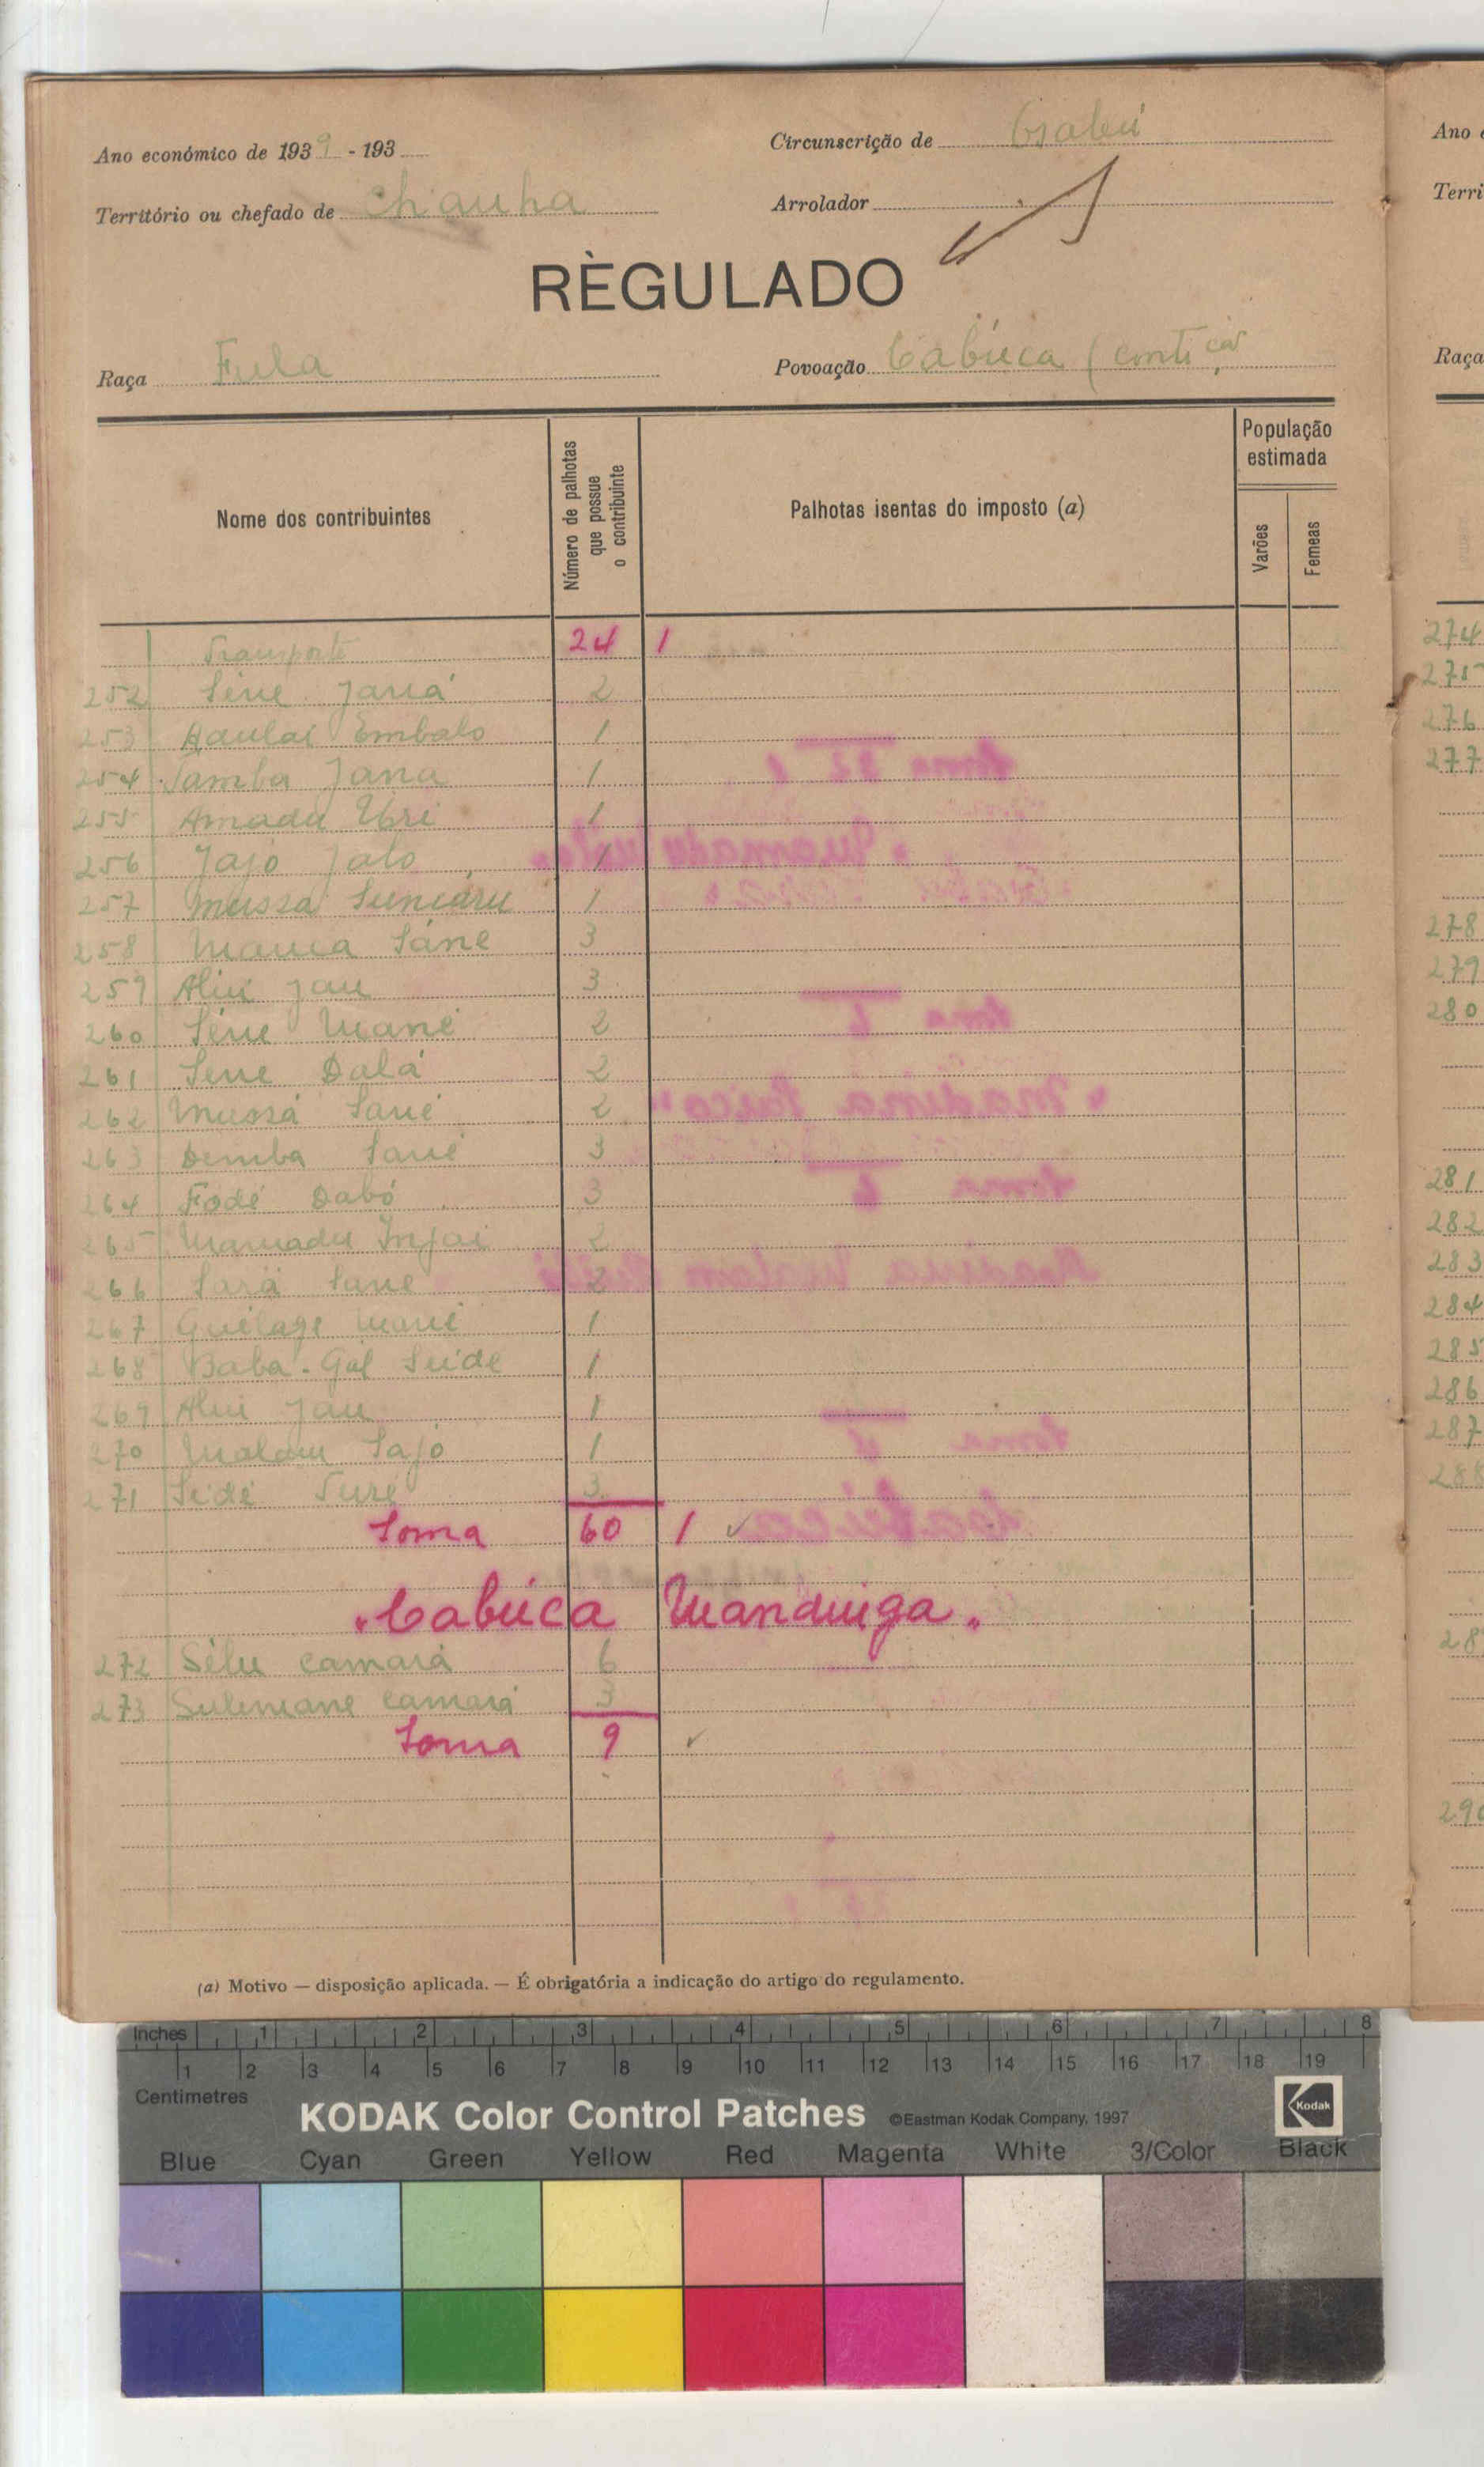 Ano económico de 1939 - 193
Circunscrição de Gabú
Território ou chefado de Chanha
Arrolador
RÈGULADO
Raça Fula
Povoação Cabúca (contiçar
Nome dos contribuintes
Número de palhotas que possue o contribuinte
Palhotas isentas do imposto (a)
População estimada
Varões
Femeas
Transporte 24 1
252 Séne Janá 2
253 Aaulai Embalo 1
254 Samba Jana 1
255 Amadu Uri 1
256 Jajo Jalo 1
257 Mussa Suncáru 1
258 Mama Sáne 3
259 Aliu Jau 3
260 Séne Mané 2
261 Sene Dalá 2
262 Mussá Sané 2
263 Demba Sané 3
264 Fodé Dabó 3
265 Mamadu Injai 2
266 Sará Sane 2
267 Quélage Mané 1
268 Baba-Gal Seide 1
269 Aliu Jau 1
270 Malam Sajo 1
271 Sidé Turé 3
Soma 60 1
"Cabúca Mandinga"
272 Sélu Camará 6
273 Sulemane Camará 3
Soma 9
(a) Motivo — disposição aplicada. — É obrigatória a indicação do artigo do regulamento.
Ano
Terri
Raça
274
275
276
277
278
279
280
281
282
283
284
285
286
287
288
28
290
Inches 1 2 3 4 5 6 7 8
1 2 3 4 5 6 7 8 9 10 11 12 13 14 15 16 17 18 19
Centimetres
KODAK Color Control Patches ©Eastman Kodak Company, 1997 Kodak
Blue Cyan Green Yellow Red Magenta White 3/Color Black